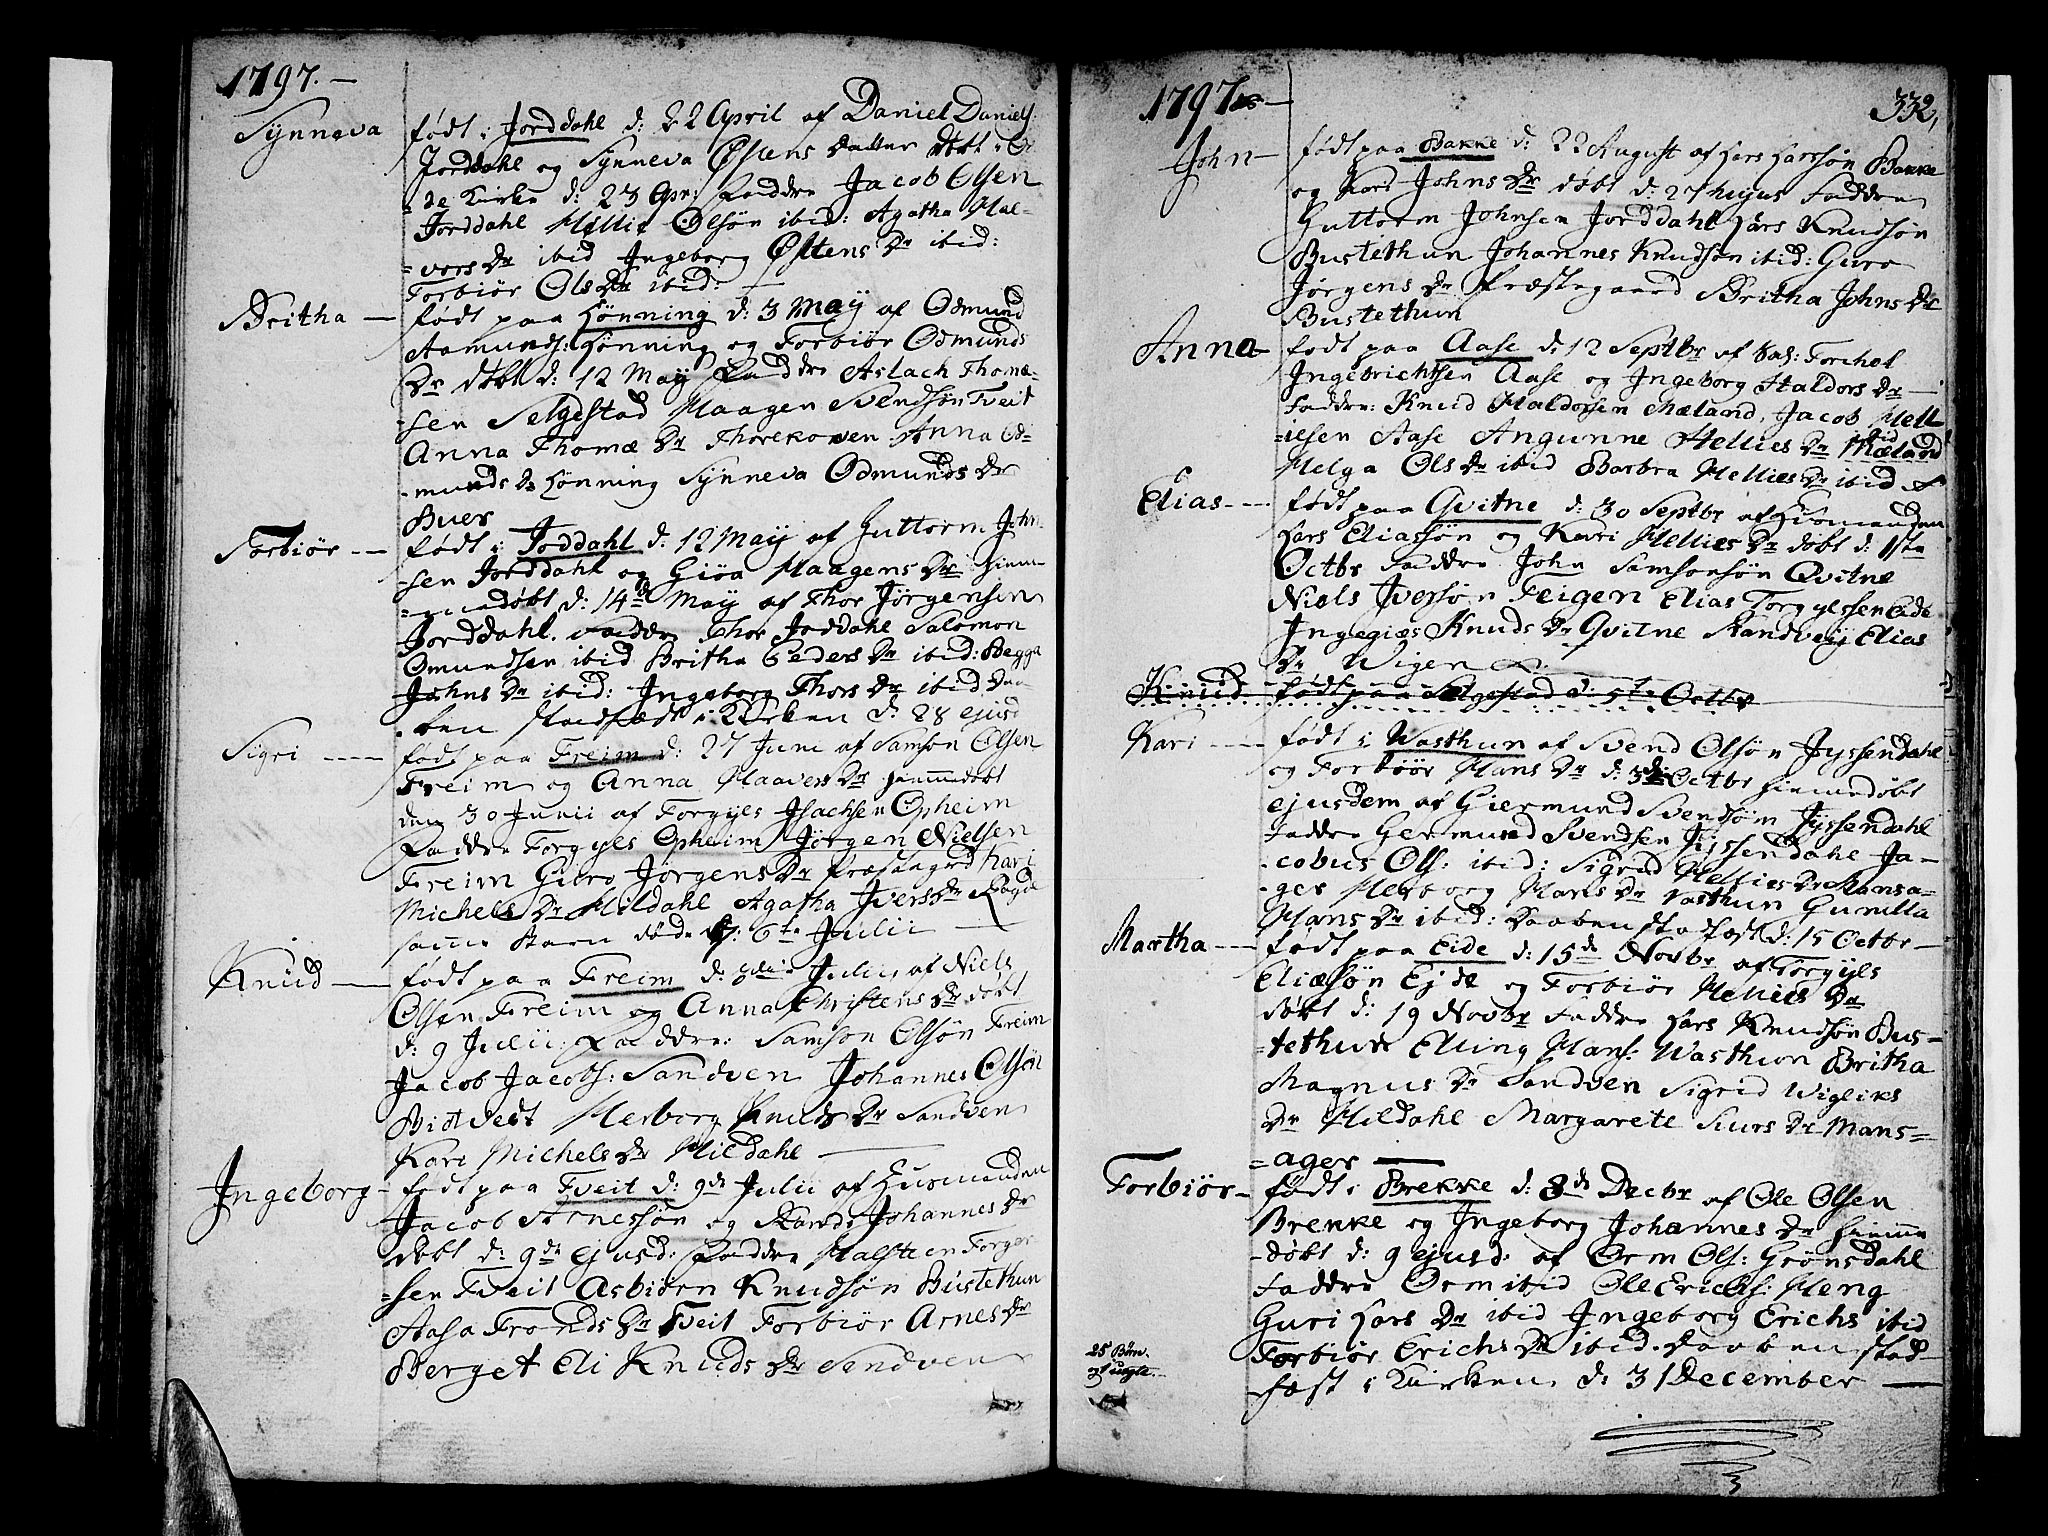 1797.
Synneva
født i Jorddahl d: 22 April af Daniel Daniels:
Jorddahl og Synneva Østens Datter døbt i
de Kirke d: 23 Apr: Faddre Jacob Olsen
Jorddahl Hellie Olsøn ibid: Agatha Hal-
=vors Dr ibid Ingeborg Østens Dr ibid:
Torbiør Ols Dr ibid:
Britha
født paa Hønning d: 3 May af Odmund
Aamunds: Hønning og Torbiør Odmunds
Dr døbt d: 12 May Faddre Aslach Thomæ=
=sen Selgestad Haagen Svendsøn Tveit
Anna Thomæ Dr Thorekoven Anna Od-
-munds Dr Hønning Synneva Odmunds Dr
Buer
Torbiør
født i Joddahl d: 12 May af Guttorm John
-sen Jorddahl og Giøa Haagens Dr hiem-
=medøbt d: 14de May af Thor Jørgensen
Jorddahl. Faddre Thor Joddahl Salomon
Omundsen ibid Britha Peders Dr ibid: Begga
Johns Dr ibid: Ingeborg Thors Dr ibid Daa-
-ben stadfæst i Kirken d: 28 ejusd
Sigri
født paa Freim d: 27 Juni af Samson Olsen
Freim og Anna Haavers Dr hiemmedøbt
den 30 Junii af Torgyls Isachsen Opheim
Faddre Torgyls Opheim Jørgen Nielsen
Freim Guro Jørgens Dr Præstegrd Kari
Michels Dr Hildahl Agatha Ivers Dr
samme Barn døde d: 6te Julii
Knud
født paa Freim d: Julii af Niels
Olsen Freim og Anna Christens Dr døbt
d: 9 Julii: Faddre: Samson Olsøn Freim
Jacob Jacobs: Sandven Johannes Olsøn
Bustvedt Herborg Knuds Dr Sandven
Kari Michels Dr Hildahl
Ingeborg
født paa Tveit d: 9de Julii af Huusmanden
Jacob Arnessøn og Randi Johannes Dr
døbt d: 9de ejusd: Faddre Halsteen Torger
=sen Tveit Asbiørn Knudsøn Bustethun
Aasa Tronds Dr Tveit Torbiør Arnes Dr
Berget Eli Knuds Dr Sendven
1797
332,
John
født paa Bakke d: 22 August af Lars Larssøn Bakke
og Kari Johns Dr døbt d: 27 hujus Faddre
Guttorm Johnsen Jorddahl Lars Knudsøn
Bustethun Johannes Knudsøn ibid: Guro
Jørgens Dr Præstegaard Britha Johns Dr
Bustethun
Anna
født paa Aase d: 12 Septbr af Torchel
Ingebrichtsen Aase og Ingeborg Haldors Dr
Faddre: Knud Haldorsen Mæland, Jacob Hell
=iesen Aase Angunne Hellies Dr Mæland
Helga Ols Dr ibid Barbra Hellies Dr ibid
Elias
født paa Qvitne d: 30 Septbr af Huusmanden
Lars Eliassøn og Kari Hellies Dr døbt d: 1ste
Octbr Faddre John Samsonsøn Qvitne
Niels Iversøn Feigen Elias Torgylssen Eide
Ingegiæs Knuds Dr Qvitne Randvey Elias
Dr Wigen
Knud født paa Selgestad d: 5te Octbr
Kari
født i Wasthun af Svend Olsøn Jyssendahl
og Torbiør Hans Dr d: 3de Octbr hiemedøbt
ejusdem af Giermund Svendsøn Jyssendahl
Faddre Germund Svendsen Jyssendahl Ja-
-cobus Ols: ibid: Sigrid Hellies Dr Mansa=
-ger Herborg Hans Dr Vasthun Gunilla
Hans Dr ibid: Daaben stadfæst d: 15 Octbr
Martha
født paa Eide d: 15de Novbr af Torgyls
Eliæsøn Ejde og Torbiør Hellies Dr
døbt d: 19 Novbr Faddre Lars Knudsøn Bus-
=tethun Elling Hans: Wasthun Britha
Magnus Dr Sandven Sigrid Wigliks
Dr Hildahl Margarete Siurs Dr Mans=
=ager
Torbiør
født i Brekke d: 8de Decbr af Ole Olsen
Brekke og Ingeborg Johannes Dr hiemme
-døbt d: 9 ejusd: af Orm Ols: Grønsdahl
Faddre Orm ibid Ole Erichs: Heng
Guri Lars Dr ibid Ingeborg Erichs ibid
Torbiør Erichs Dr ibid. Daaben stad-
-fæst i Kirken d: 31 December
25 Børn
3 uægte.